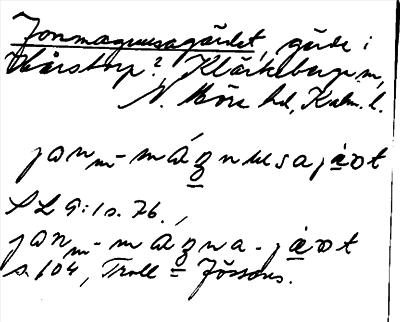 Jonmagnusagärdet, gärde i
Hårstorp?, Klåckeberga sn,
N. Möre hd, Kalm. l.
jɔn m- mágnusajæɔt
SL 9:1 s. 76.,
jɔn m- mágna-jæɔt
s. 104, Troll = Jössons.